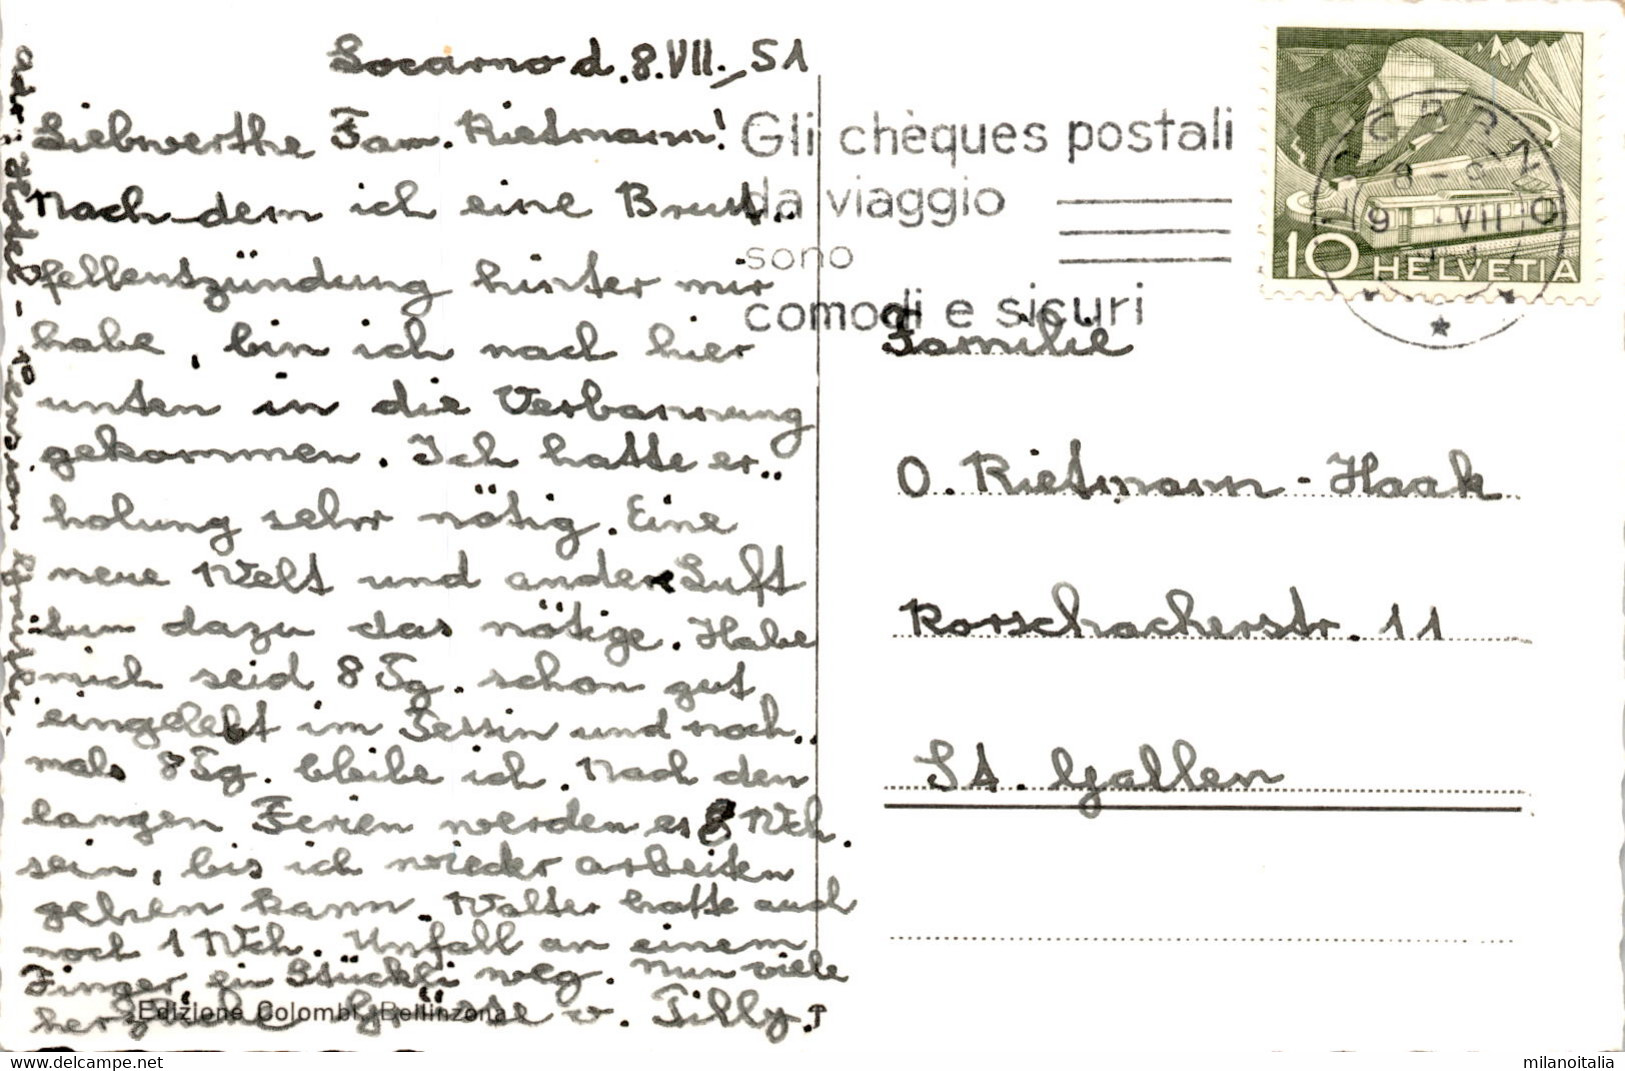 Locarno d. 8.VII. 51
Liebwerthe Fam. Rietmann!
Nach-dem ich eine Brust..
fellentzündung hinter mir
habe, bin ich nach hier
unten in die Verbannung
gekommen. Ich hatte er..
holung sehr nötig. Eine
neue Welt und andere Luft
tun dazu das nötige. Habe
mich seid 8 Tg. schon gut
eingelebt im Tessin und noch..
mals 8 Tg. bleibe ich. Nach den
langen Ferien werden es 8 Wch.
sein, bis ich wieder arbeiten
gehen kann. Walter hatte auch
noch 1 Wch. Unfall an einem
Finger, ein Stückli weg. Nun viele
herzliche Grüsse v. Tilly.
Edizione Colombi, Bellinzona
Adr:
Pension
Gli chèques postali
da viaggio
sono
comodi e sicuri
LOCARNO
8-9
9. VII
10 HELVETIA
Familie
O. Rietmann-Haak
Rorschacherstr. 11
St. Gallen
milanoitalia